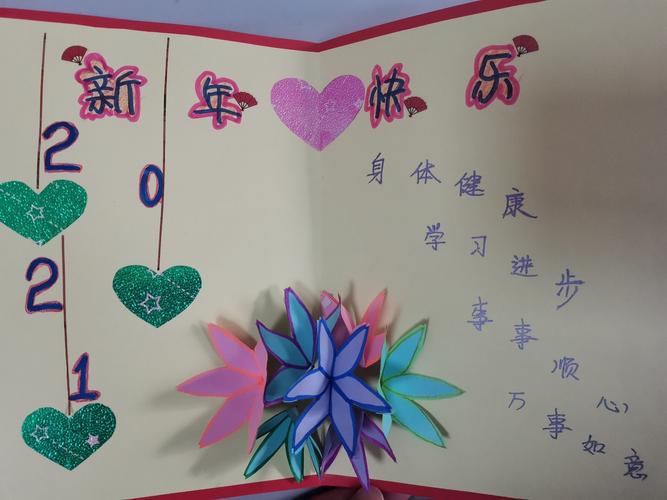 新年快乐
2021
身体健康
学习进步
事事顺心
万事如意